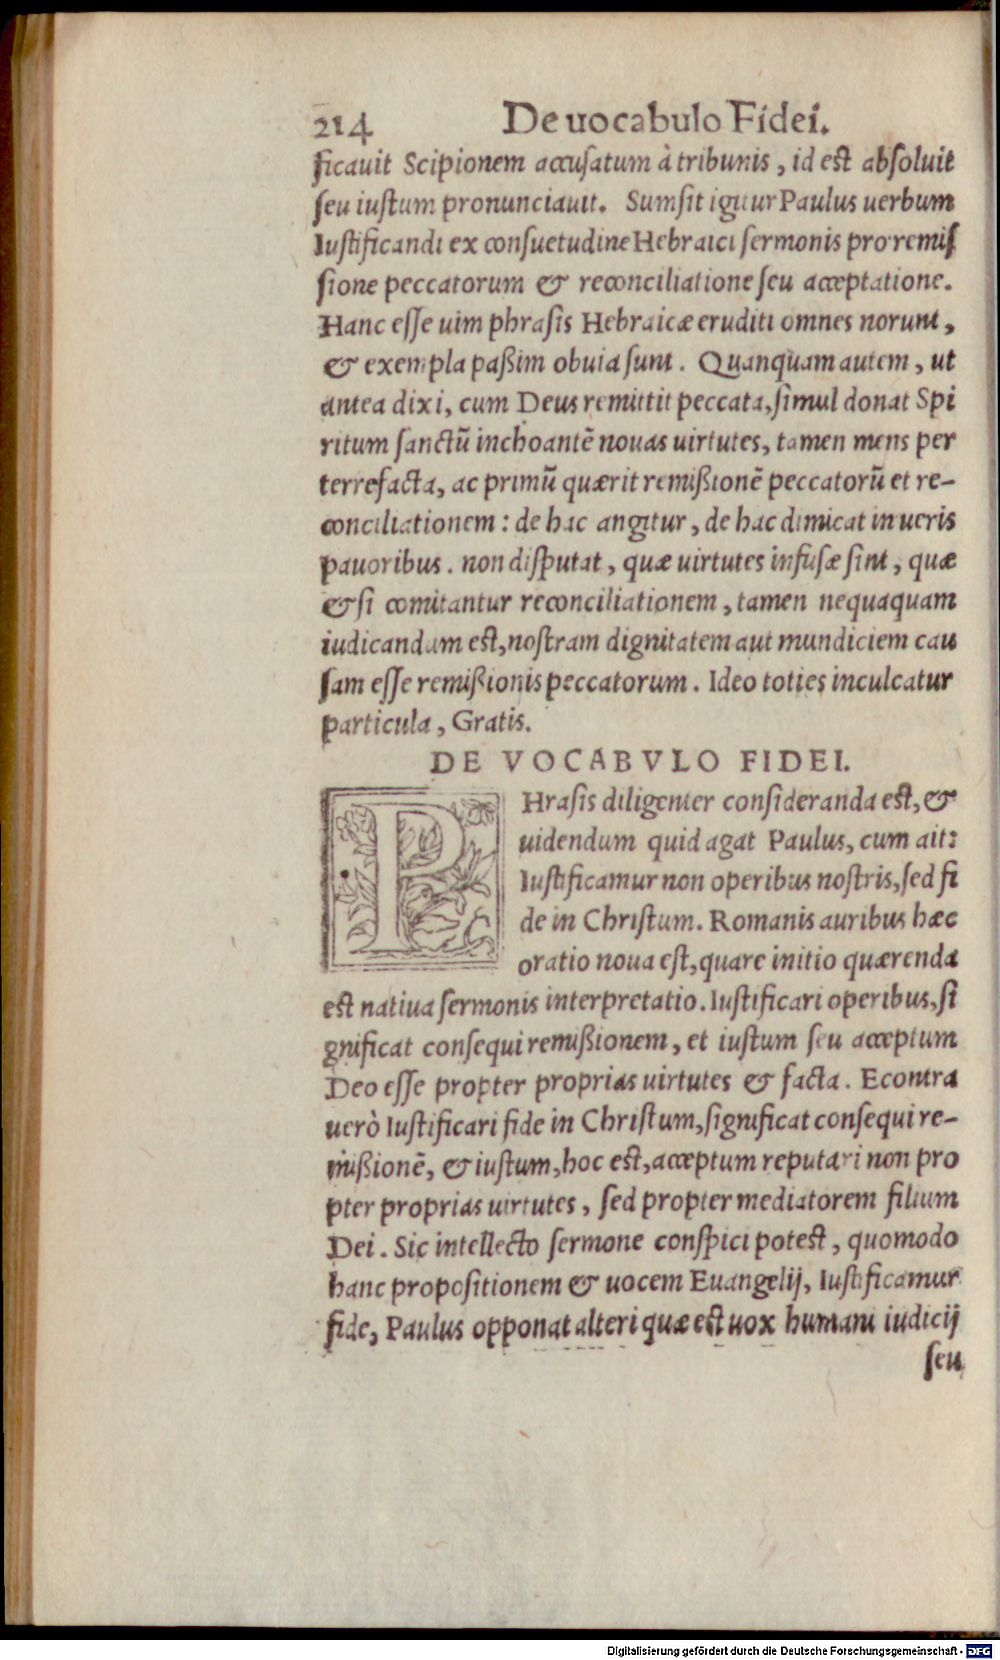 214 De uocabulo Fidei.
ficauit Scipionem accusatum à tribunis, id est absoluit
seu iustum pronunciauit. Sumsit igitur Paulus uerbum
Iustificandi ex consuetudine Hebraici sermonis pro remis
sione peccatorum & reconciliatione seu acceptatione.
Hanc esse uim phrasis Hebraicæ eruditi omnes norunt,
& exempla paßim obuia sunt. Quanquam autem, ut
antea dixi, cum Deus remittit peccata, simul donat Spi
ritum sanctũ inchoantẽ nouas uirtutes, tamen mens per
terrefacta, ac primũ quærit remißionẽ peccatorũ et re-
conciliationem: de hac angitur, de hac dimicat in ueris
pauoribus. non disputat, quæ uirtutes infusæ sint, quæ
& si comitantur reconciliationem, tamen nequaquam
iudicandum est, nostram dignitatem aut mundiciem cau
sam esse remißionis peccatorum. Ideo toties inculcatur
particula, Gratis.
DE VOCABVLO FIDEI.
PHrasis diligenter consideranda est, &
uidendum quid agat Paulus, cum ait:
Iustificamur non operibus nostris, sed fi
de in Christum. Romanis auribus hæc
oratio noua est, quare initio quærenda
est natiua sermonis interpretatio. Iustificari operibus, si
gnificat consequi remißionem, et iustum seu acceptum
Deo esse propter proprias uirtutes & facta. Econtra
uerò Iustificari fide in Christum, significat consequi re-
mißionẽ, & iustum, hoc est, acceptum reputari non pro
pter proprias uirtutes, sed propter mediatorem filium
Dei. Sic intellecto sermone conspici potest, quomodo
hanc propositionem & uocem Euangelij, Iustificamur
fide, Paulus opponat alteri quæ est uox humani iudicij
seu
Digitalisierung gefördert durch die Deutsche Forschungsgemeinschaft - DFG